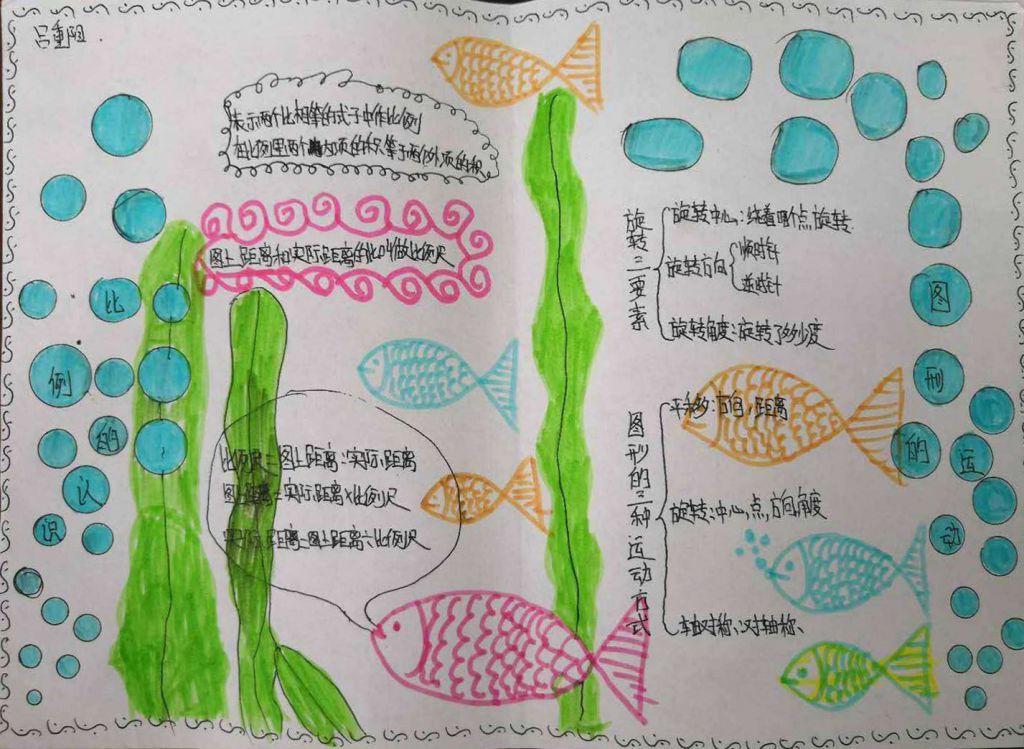 吕重阳
表示两个比相等的式子叫作比例
在比例里两个内项的积等于两个外项的积
图上距离和实际距离的比叫做比例尺
比例的认识
比例尺=图上距离:实际距离
图上距离=实际距离×比例尺
实际距离=图上距离÷比例尺
旋转三要素
旋转中心:绕着哪个点旋转
旋转方向
顺时针
逆时针
旋转角度:旋转了多少度
图形的运动
图形的三种运动方式
平移:方向,距离
旋转:中心,点,方向,角度
轴对称:对称轴